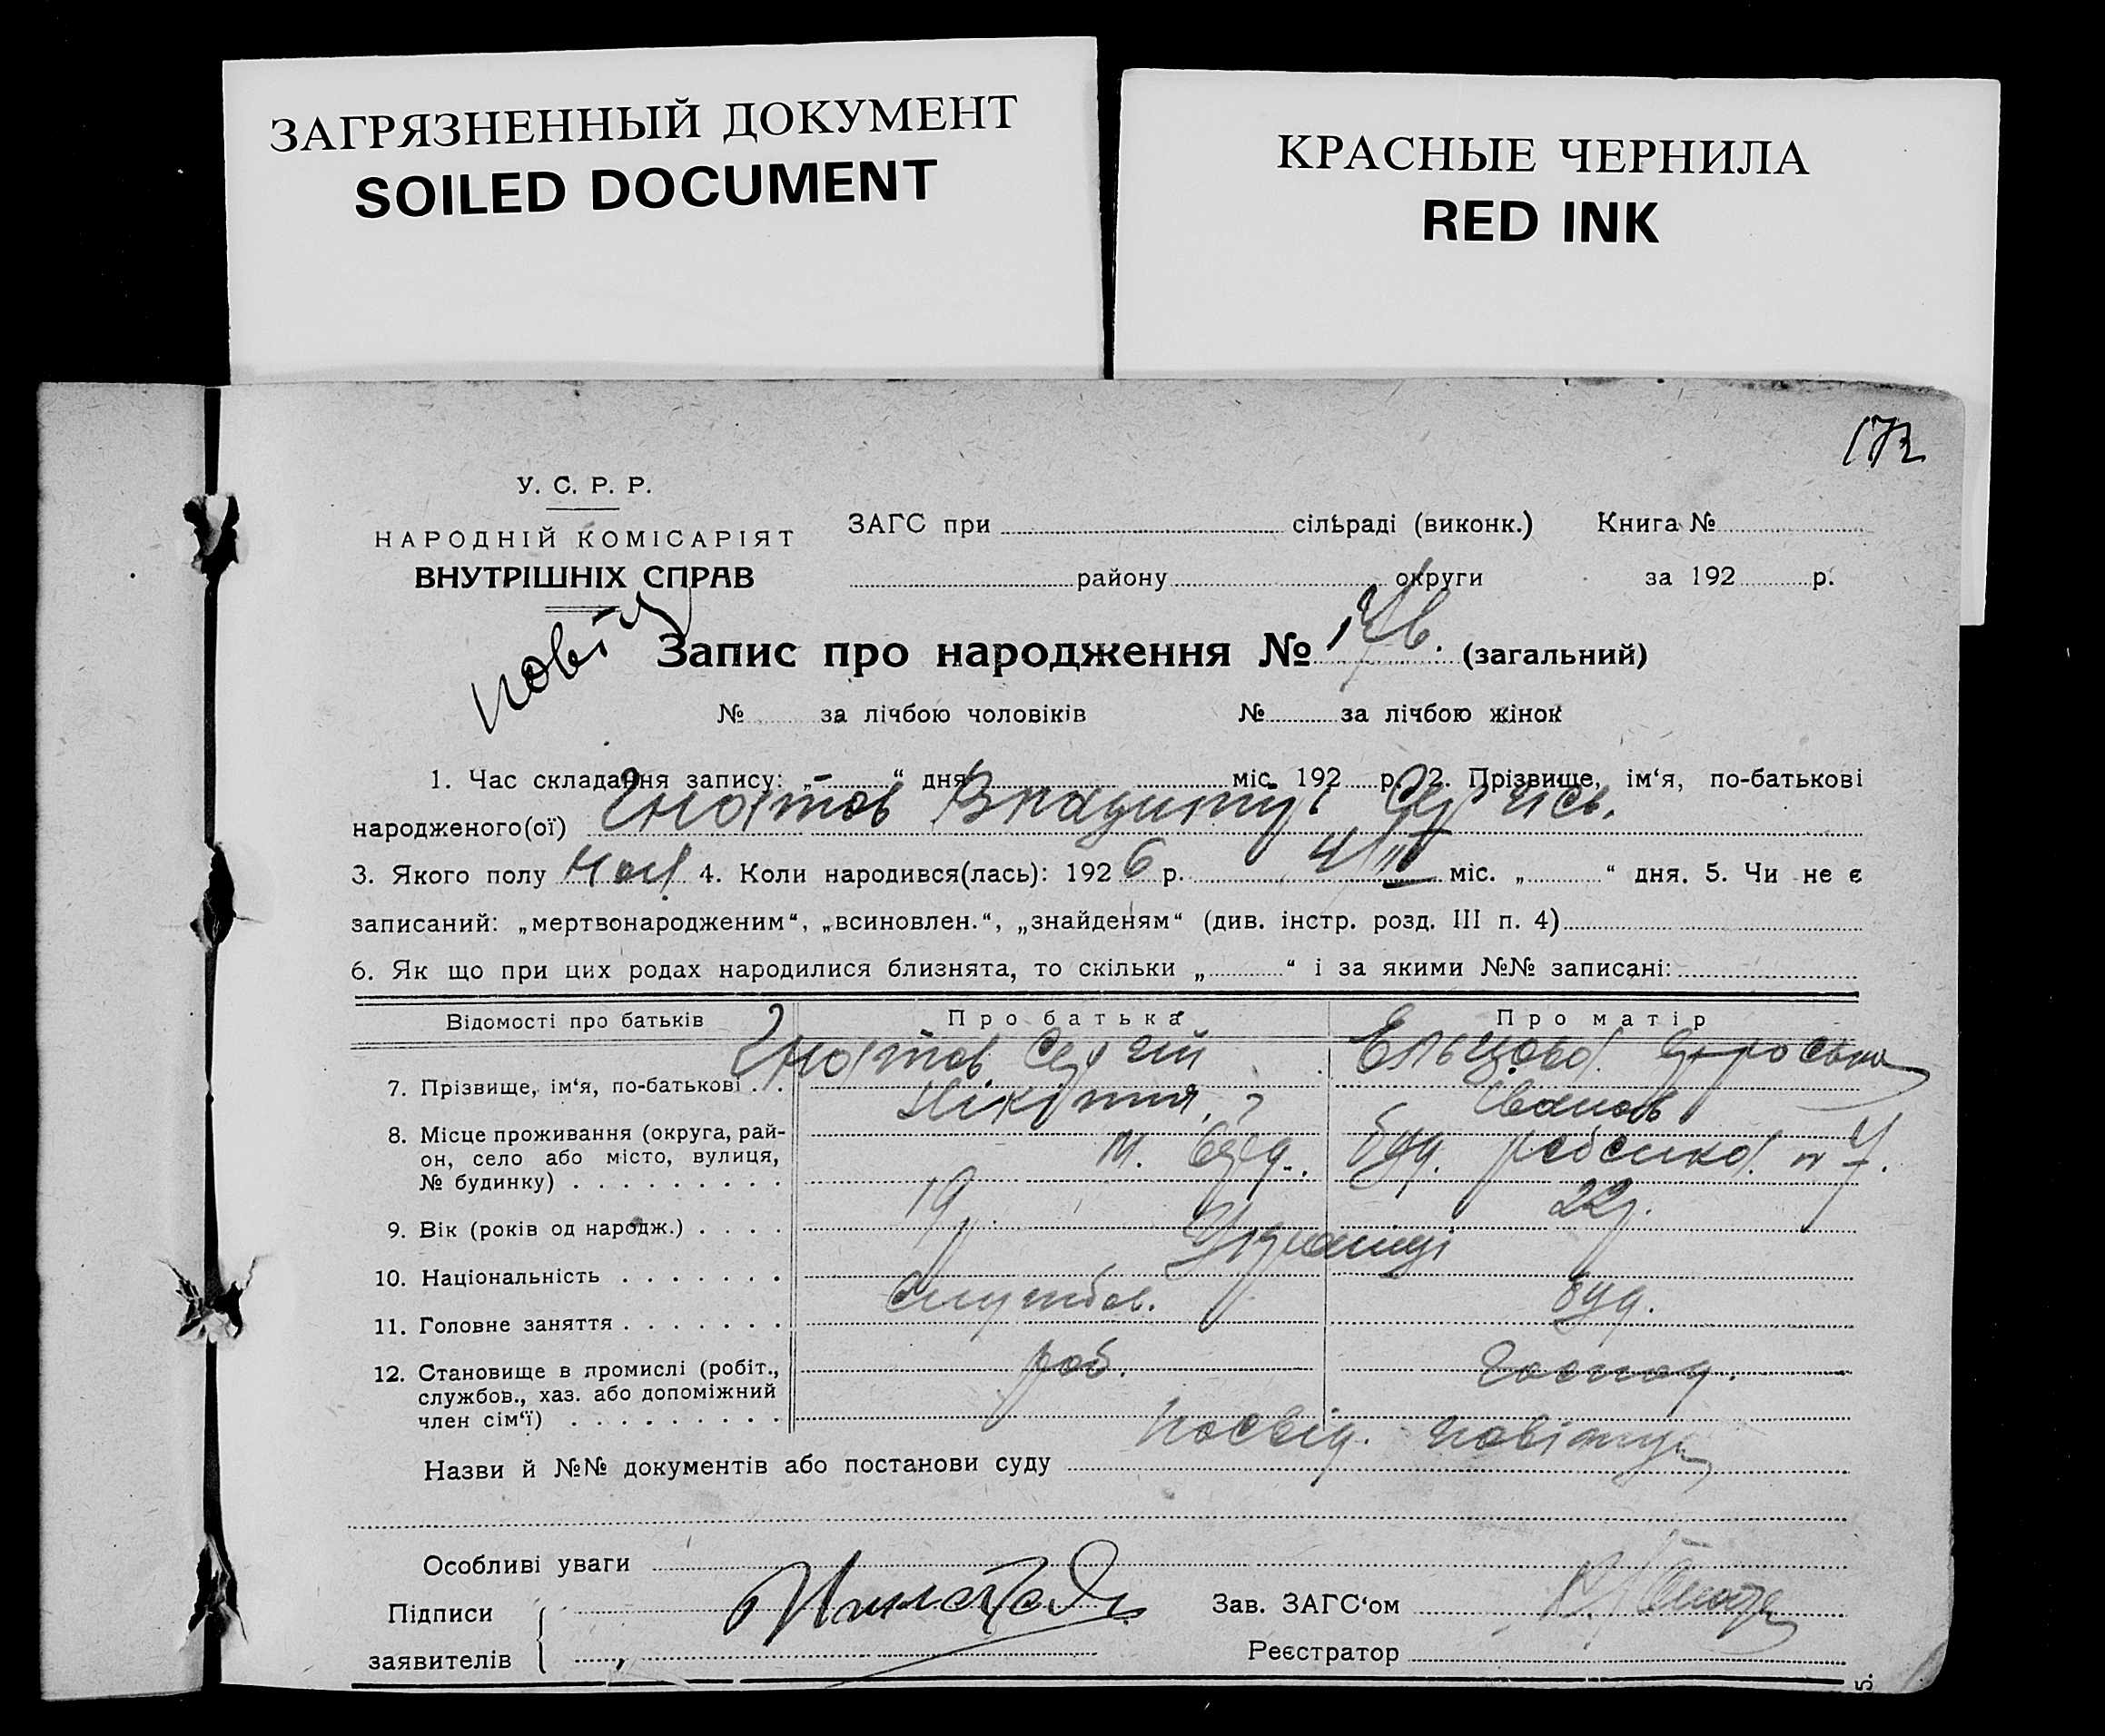 ЗАГРЯЗНЕННЫЙ ДОКУМЕНТ
SOILED DOCUMENT
КРАСНЫЕ ЧЕРНИЛА
RED INK
У. С. Р. Р.
НАРОДНІЙ КОМІСАРІЯТ
ВНУТРІШНІХ СПРАВ
ЗАГС при сільраді (виконк.) Книга №
району округи за 192 р.
Запис про народження № (загальний)
№ за лічбою чоловіків № за лічбою жінок
1. Час складання запису: „–“ дня міс. 192 р. 2. Прізвище, ім‘я, по-батькові
народженого(ої) Гнатов
3. Якого полу чол 4. Коли народився(лась): 1926 р. 4/III міс. „ “ дня. 5. Чи не є
записаний: „мертвонародженим“, „всиновлен.“, „знайденям“ (див. інстр. розд. III п. 4)
6. Як що при цих родах народилися близнята, то скільки „ “ і за якими №№ записані:
Відомості про батьків Про батька Про матір
7. Прізвище, ім‘я, по-батькові . . Гнатов Сергій Ельцова
Іванов
8. Місце проживання (округа, рай-
он, село або місто, вулиця,
№ будинку) . . . . . . . . . м. буд.
9. Вік (років од народж.) . . . . 19 р. 22 р.
10. Національність . . . . . . .
11. Головне заняття . . . . . . . службов.
12. Становище в промислі (робіт.,
службов., хаз. або допоміжний
член сім‘ї) . . . . . . . . . роб. господ.
Назви й №№ документів або постанови суду посвід.
Особливі уваги
Підписи Зав. ЗАГС‘ом
заявителів Реєстратор
5.